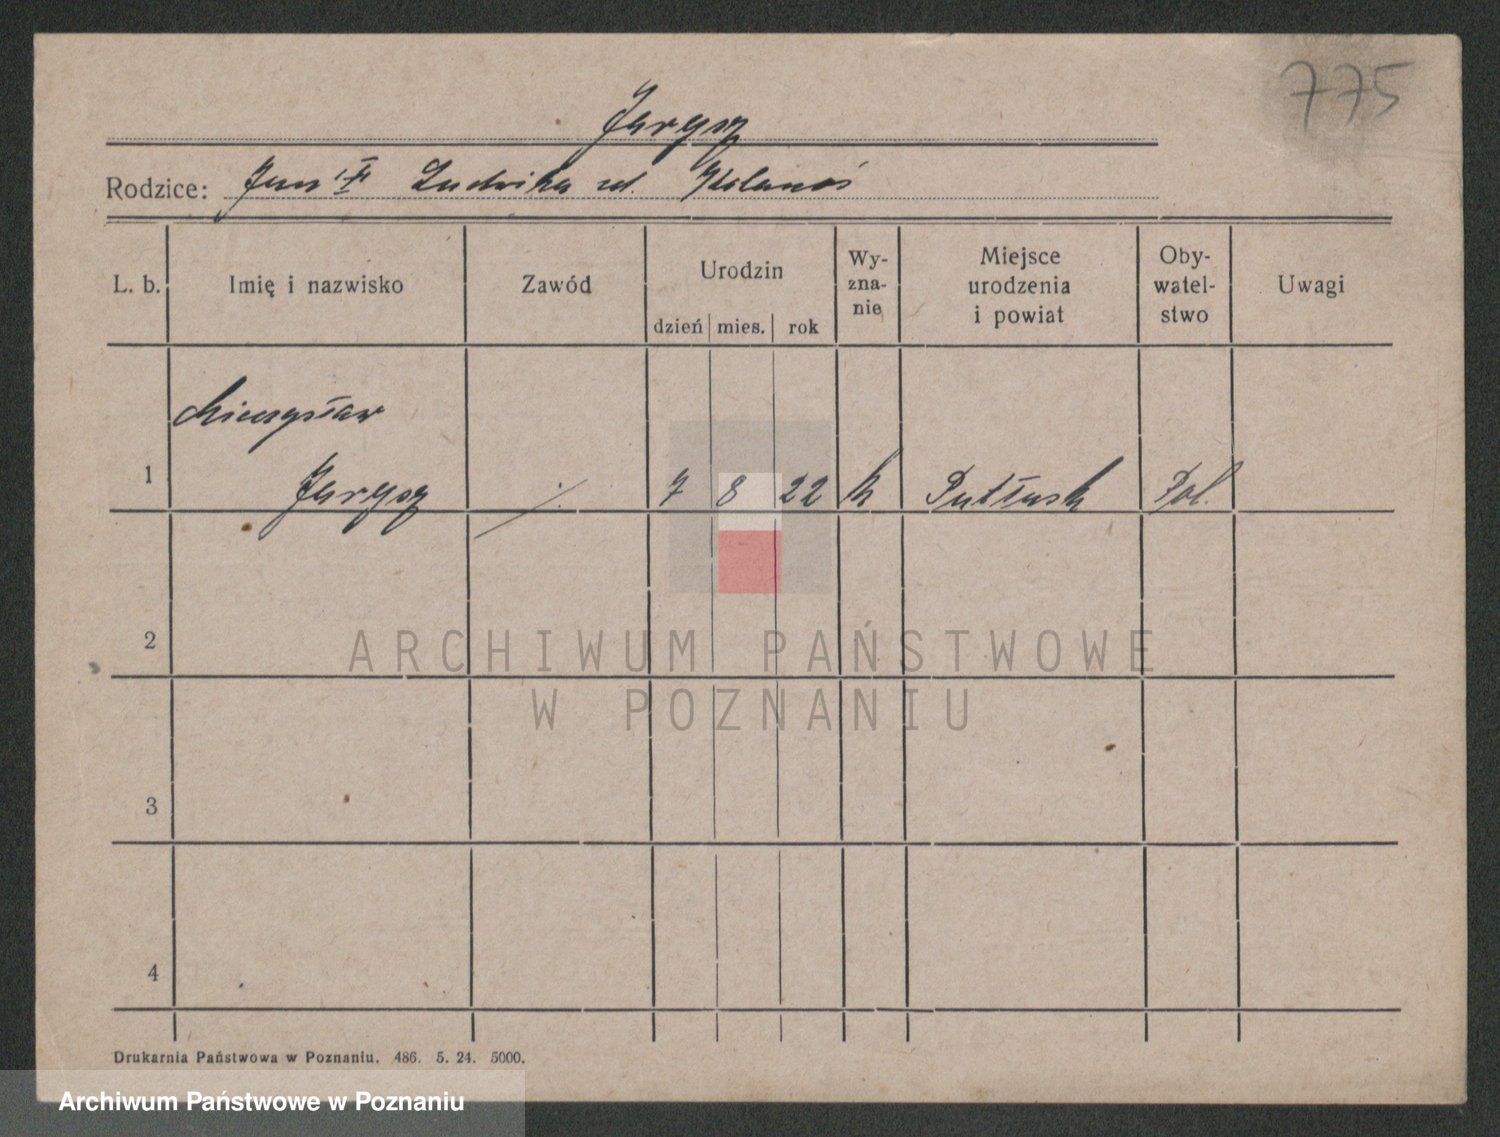 775
Jarysz
Rodzice: Jan Ludwika zd.
L. b. Imię i nazwisko Zawód Urodzin dzień mies. rok Wy-zna-nie Miejsce urodzenia i powiat Oby-watel-stwo Uwagi
Mieczysław
1 Jarysz ./. 7 8 22 k Pułtusk Pol.
2
ARCHIWUM PAŃSTWOWE
W POZNANIU
3
4
Drukarnia Państwowa w Poznaniu. 486. 5. 24. 5000.
Archiwum Państwowe w Poznaniu